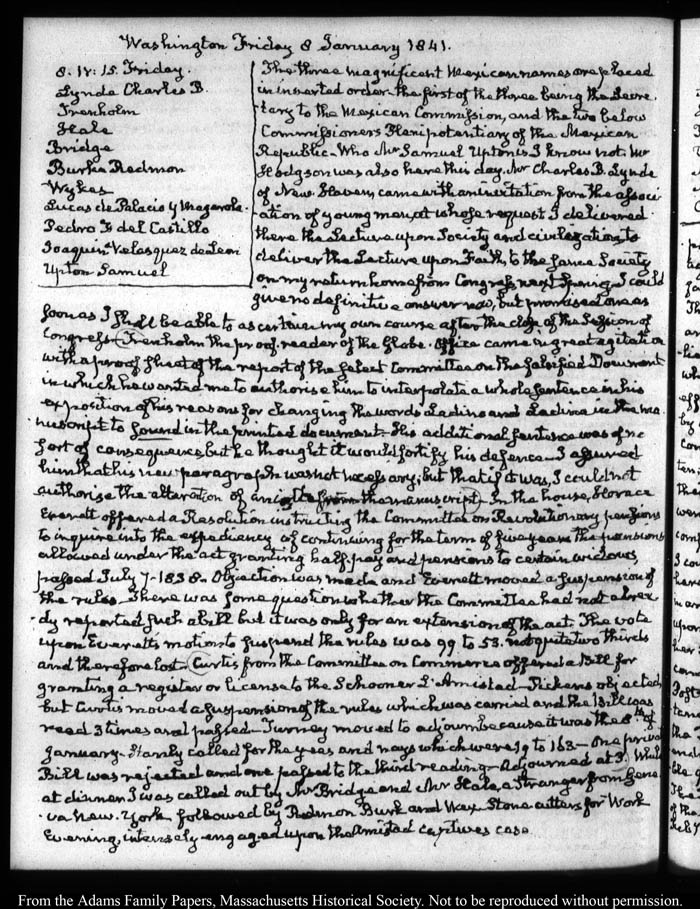 Washington Friday 8 January 1841.
8. IV: 15. Friday.
Lynde Charles B.
Trenholm
Hale
Bridge
Burke Redmon
Wykes
Lucas de Palacio y Magarola.
Pedro F del Castillo
Joaquin Velasquez de Leon
Upton Samuel
The three magnificent Mexican names are placed
in inverted order the first of the three being the Secre
tary to the Mexican Commission, and the two below
Commissioners Plenipotentiary of the Mexican
Republic. Who Mr Samuel Upton is I know not. Mr
Hodgson was also here this day. Mr Charles B. Lynde
of New-Haven, came with an invitation from the associ
ation of young men, at whose request I delivered
there the Lecture upon Society and civilization, to
deliver the Lecture upon Faith, to the same Society
on my return home from Congress next Spring. I could
give no definitive answer now, but promised one as
soon as I shall be able to ascertain my own course after the close of the Session of
Congress. Trenholm the proof-reader of the Globe. Office came in great agitation
with a proof sheet of the report of the select Committee on the falsified Document
in which he wanted me to authorise him to interpolate a whole sentence in his
exposition of his reasons for changing the words Ladino and Ladina in the ma
nuscript to sound in the printed document. His additional sentence was of no
sort of consequence, but he thought it would fortify his defence. I assured
him that his new paragraph was not necessary; but that if it was, I could not
authorise the alteration of an iota from the manuscript. In the house, Horace
Everett offered a Resolution instructing the Committee on Revolutionary pensions
to inquire into the expediency of continuing for the term of five years the pensions
allowed under the act granting half pay and pensions to certain widows,
passed July 7. 1838. Objection was made and Everett moved a suspension of
the rules. There was some question whether the Committee had not alrea
dy reported such a bill but it was only for an extension of the act. The vote
upon Everett's motion to suspend the rules was 99 to 53. not quite two thirds
and therefore lost. Curtis from the Committee on Commerce offered a Bill for
granting a register or license to the Schooner L'Amistad. Pickens objected,
but Curtis moved a suspension of the rules which was carried and the Bill was
read 3 times and passed. Turney moved to adjourn because it was the 8th of
January. Stanly called for the yeas and nays which were 19 to 163. One private
Bill was rejected and one passed to the third reading. Adjourned at 3. While
at dinner I was called out by Mr Bridge and Mr Hale, a Stranger from Gene
va New-York followed by Redmon Burk and Stone cutters for Work
Evening, intensely engaged upon the Amistad captives case.
From the Adams Family Papers, Massachusetts Historical Society. Not to be reproduced without permission.